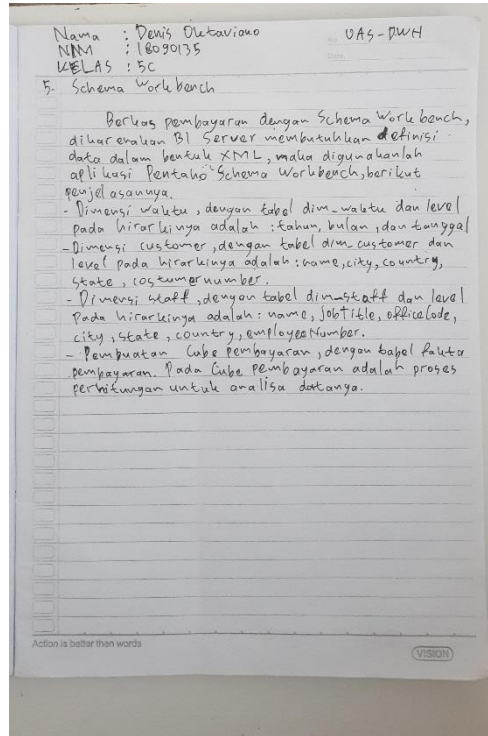 Nama : Denis Oktaviano UAS-DWH
NIM : 18090135
KELAS : 5C
No.
Date.
5. Schema Workbench
Berkas pembayaran dengan Schema Workbench,
dikarenakan BI Server membutuhkan definisi
data dalam bentuk XML, maka digunakanlah
aplikasi Pentaho Schema Workbench, berikut
penjelasannya.
- Dimensi waktu, dengan tabel dim_waktu dan level
pada hirarkinya adalah : tahun, bulan, dan tanggal
- Dimensi customer, dengan tabel dim_customer dan
level pada hirarkinya adalah : name, city, country,
state, costumernumber.
- Dimensi staff, dengan tabel dim_staff dan level
pada hirarkinya adalah : name, jobTitle, officeCode,
city, state, country, employeeNumber.
- Pembuatan Cube pembayaran, dengan tabel fakta
pembayaran. Pada Cube pembayaran adalah proses
perhitungan untuk analisa datanya.
Action is better than words
VISION